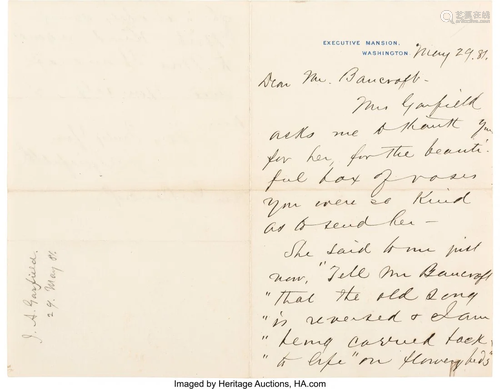 EXECUTIVE MANSION,
WASHINGTON.
May 29.81.
Dear Mr. Bancroft-
Mrs Garfield
asks me to thank you
for her, for the beauti-
ful box of roses
you were so kind
as to send her-
She said to me just
now, "Tell Mr Bancroft
"that the old song
"is reversed & I am
"being carried back
"to life" on flowery beds"
J. A. Garfield.
29. May 81
Imaged by Heritage Auctions, HA.com